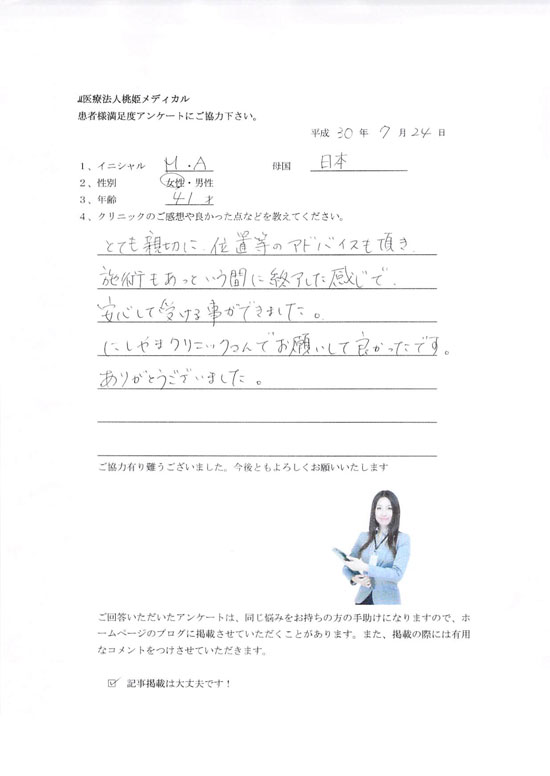 医療法人桃姫メディカル
患者様満足度アンケートにご協力下さい。
平成 30 年 7 月 24 日
1、イニシャル M・A 母国 日本
2、性別 女性・男性
3、年齢 41 才
4、クリニックのご感想や良かった点などを教えてください。
とても親切に、位置等のアドバイスも頂き、
施術もあっという間に終了した感じで、
安心して受ける事ができました。
にしやまクリニックさんでお願いして良かったです。
ありがとうございました。
ご協力有り難うございました。今後ともよろしくお願いいたします
ご回答いただいたアンケートは、同じ悩みをお持ちの方の手助けになりますので、ホ
ームページのブログに掲載させていただくことがあります。また、掲載の際には有用
なコメントをつけさせていただきます。
☑ 記事掲載は大丈夫です！